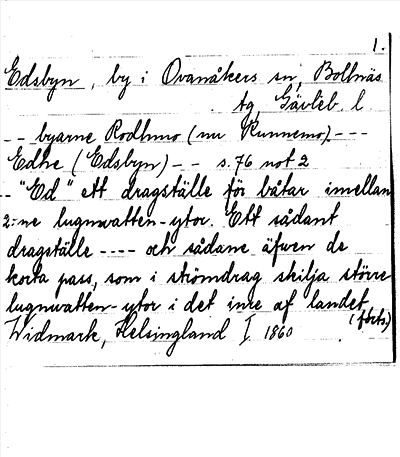 1.
Edsbyn, by i Ovanåkers sn, Bollnäs
tg Gävleb. l
-- byarne Rodhmo (nu Runnemo) ---
Edhe (Edsbyn) -- s. 76 not 2
-- "Ed" ett dragställe för båtar imellan
2:ne lugnvatten-ytor. Ett sådant
dragställe ---- och sådane äfven de
korta pass, som i strömdrag skilja större
lugnvatten-ytor i det inre af landet
(forts.)
Widmark, Helsingland I 1860